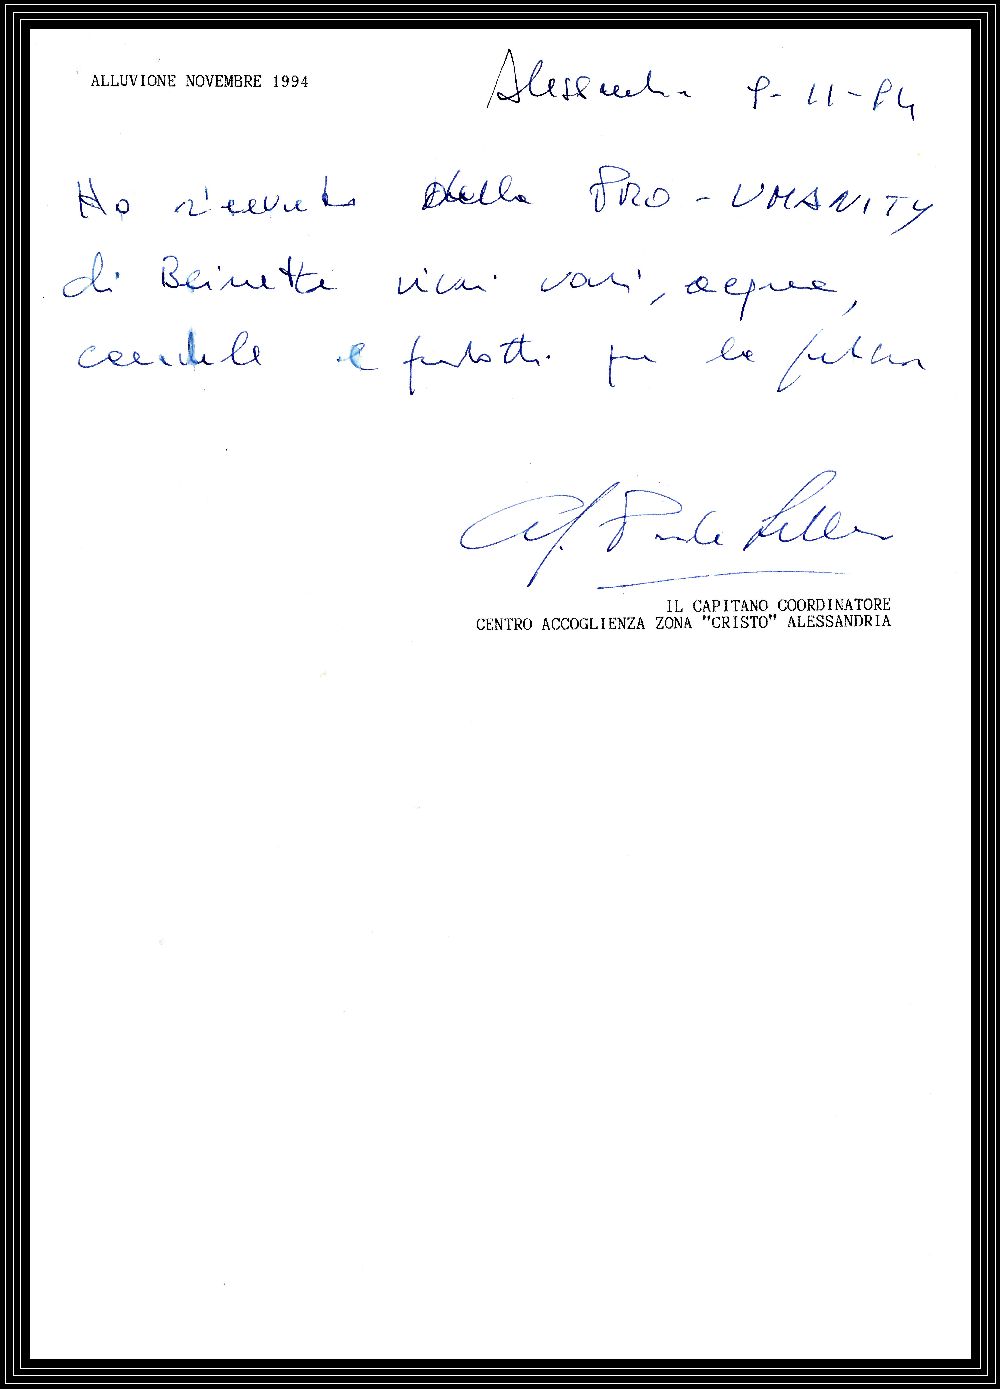 ALLUVIONE NOVEMBRE 1994
Alessandria 9-11-94
Ho ricevuto dalla PRO-UMANITY
di Beinette viveri vari, acqua,
candele e prodotti per la pulizia
Cap. Paolo
IL CAPITANO COORDINATORE
CENTRO ACCOGLIENZA ZONA "CRISTO" ALESSANDRIA